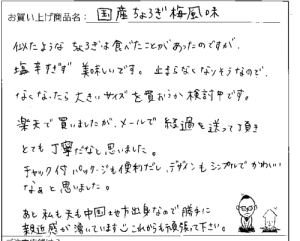 お買い上げ商品名： 国産ちょろぎ梅風味
似たような ちょろぎは食べたことがあったのですが、
塩辛すぎず 美味しいです。止まらなくなりそうなので、
なくなったら 大きいサイズを買おうか検討中です。
楽天で買いましたが、メールで 経過を送って頂き
とても 丁寧だなと思いました。
チャック付パッケージも便利だし、デザインもシンプルでかわいい
なぁと思いました。
あと 私も夫も中国地方出身なので勝手に
親近感が湧いています これからも頑張って下さい。